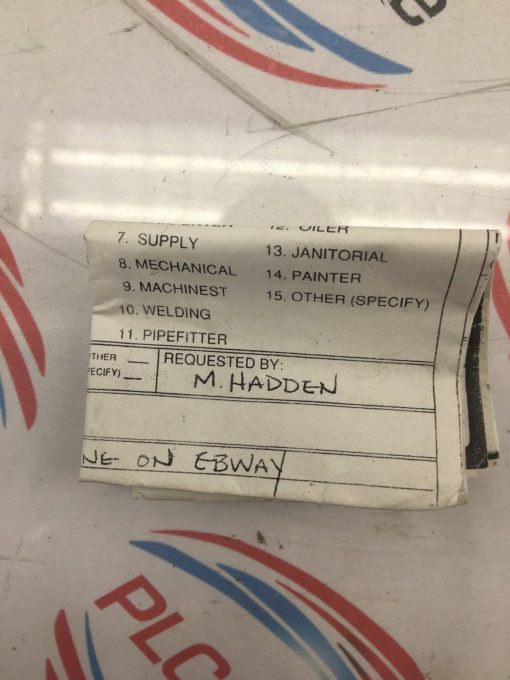 12. OILER
7. SUPPLY
13. JANITORIAL
8. MECHANICAL
14. PAINTER
9. MACHINEST
15. OTHER (SPECIFY)
10. WELDING
11. PIPEFITTER
THER
REQUESTED BY:
ECIFY)
M. HADDEN
NE ON EBWAY
PLC